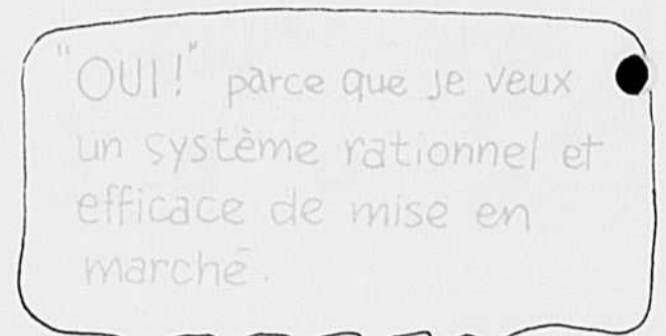 "OUI!" parce que je veux
un système rationnel et
efficace de mise en
marché.